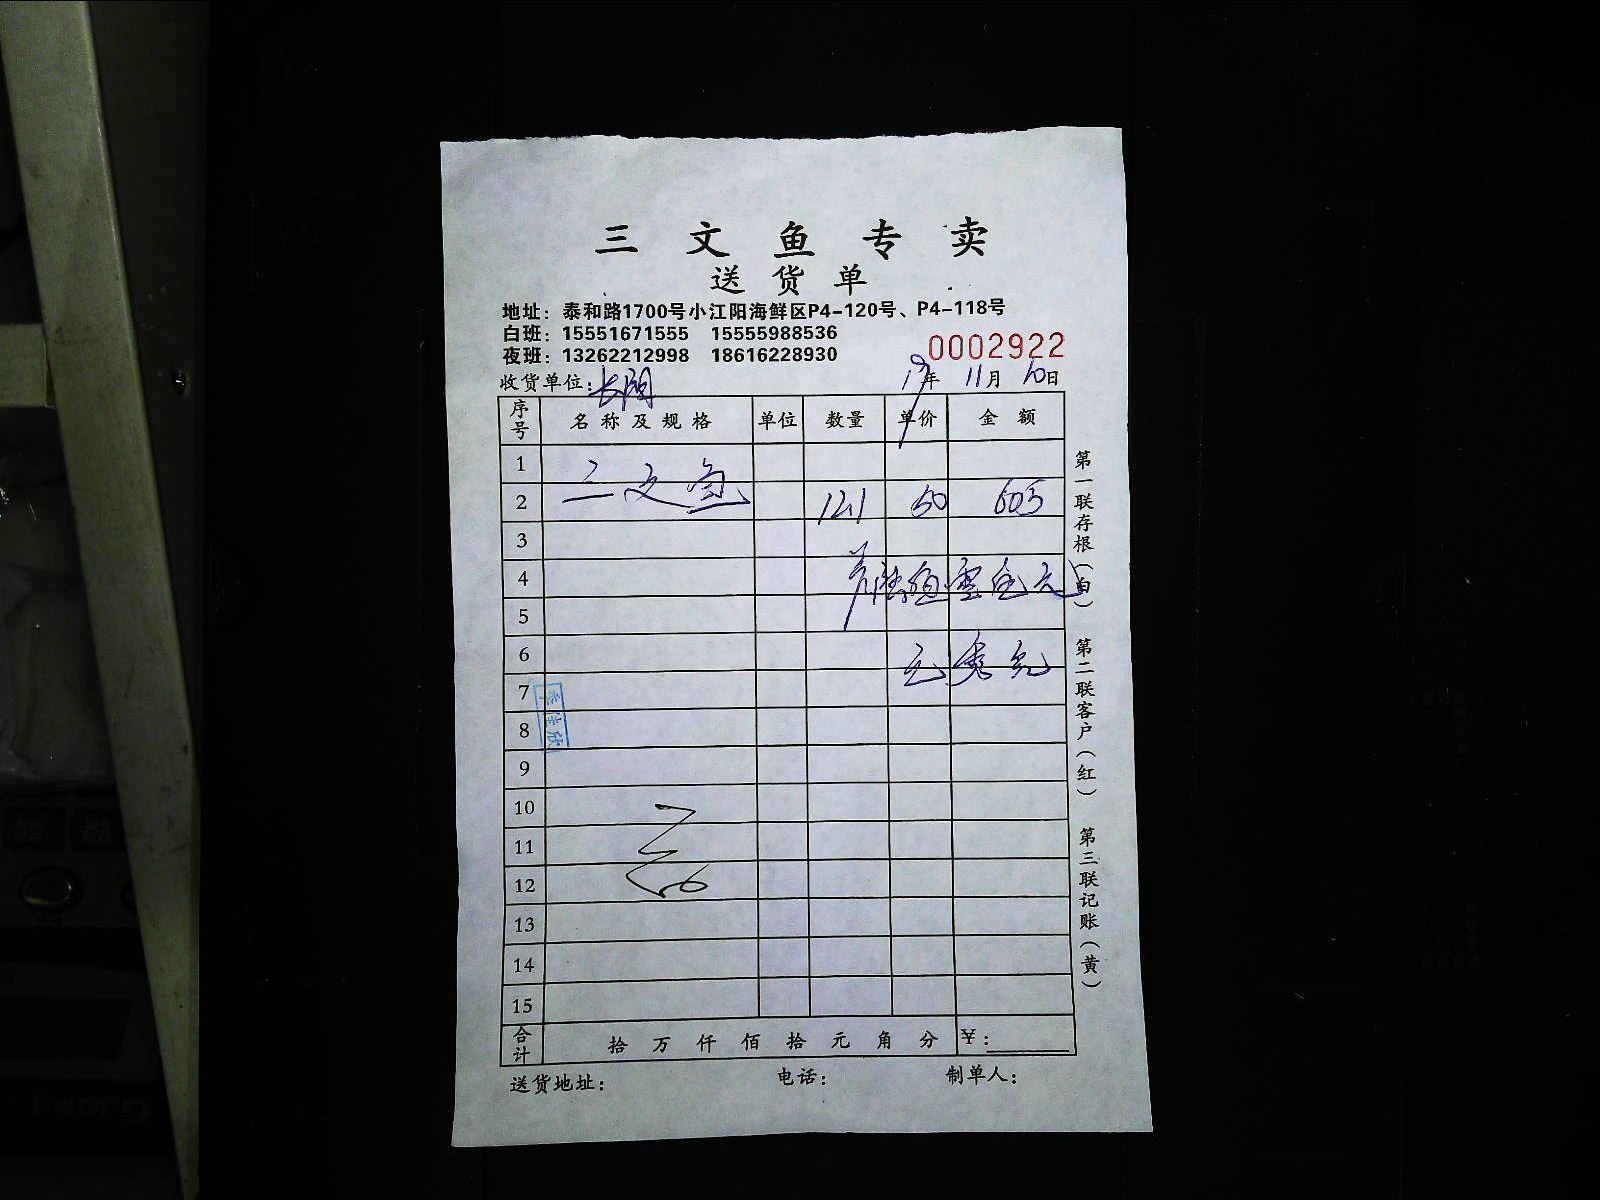 三文鱼专卖
送货单
地址：泰和路1700号小江阳海鲜区P4-120号、P4-118号
白班：15551671555 15555988536
夜班：13262212998 18616228930
0002922
收货单位：长阴 19年 11月 10日
序号 名称及规格 单位 数量 单价 金额
1
2 三文鱼 12.1 50 605
3
4
5
6
7
8
9
10
11
12
13
14
15
合计 拾 万 仟 佰 拾 元 角 分 ¥：
送货地址： 电话： 制单人：
第一联存根（白） 第二联客户（红） 第三联记账（黄）